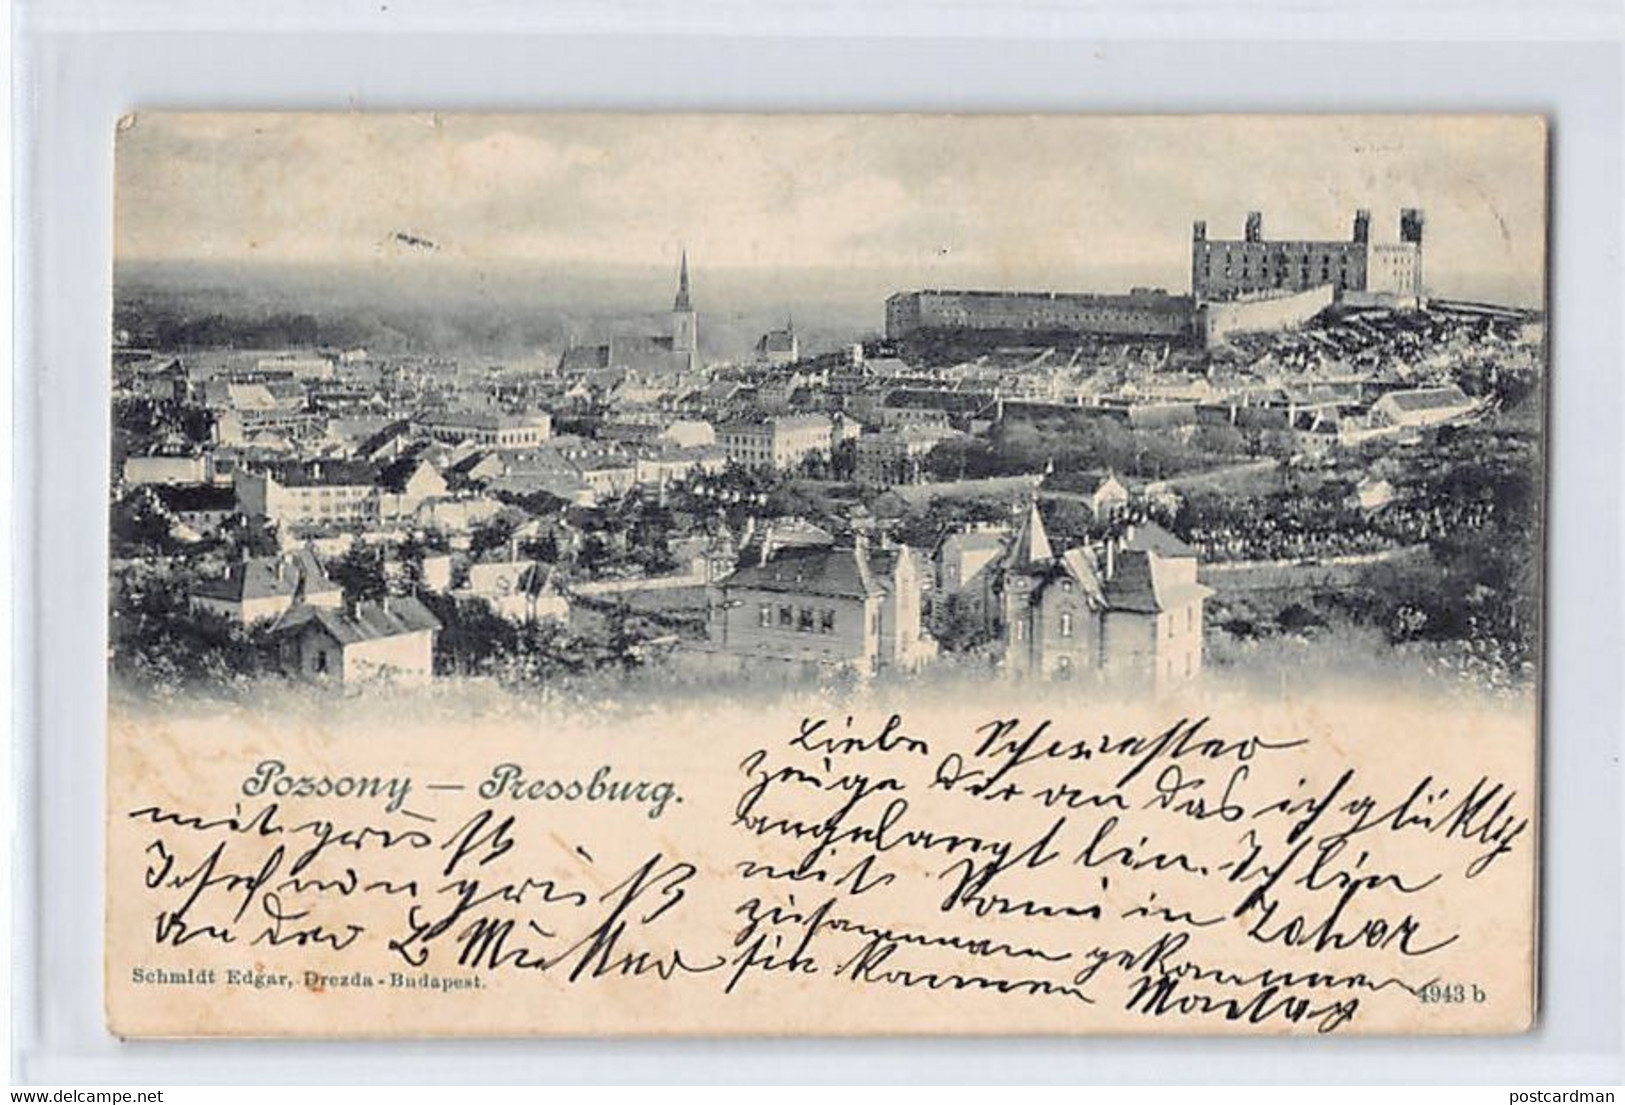 Pozsony — Pressburg.
Liebe Schwester
zeige dir an das ich glücklich
angelangt bin. Ich bin
mit Pauli in
zusammen gekommen
sie kamen Montag
mit gruß
Josef von gruß
an der L Mutter
Schmidt Edgar, Drezda-Budapest.
4943 b
delcampe.net
postcardman